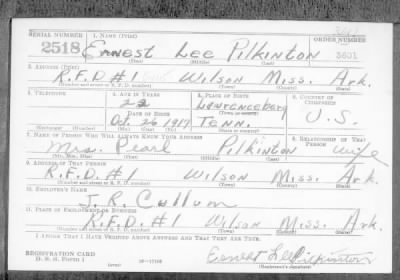 SERIAL NUMBER 1. NAME (Print) ORDER NUMBER
2518 Ernest Lee Pilkinton 3601
(First) (Middle) (Last)
2. ADDRESS (Print)
R.F.D #1 Wilson Miss. Ark.
(Number and street or R. F. D. number) (Town) (County) (State)
3. TELEPHONE 4. AGE IN YEARS 5. PLACE OF BIRTH 6. COUNTRY OF CITIZENSHIP
22 Lawrenceburg
DATE OF BIRTH (Town or county) U.S.
Oct. 26 1917 Tenn.
(Exchange) (Number) (Mo.) (Day) (Yr.) (State or country)
7. NAME OF PERSON WHO WILL ALWAYS KNOW YOUR ADDRESS 8. RELATIONSHIP OF THAT PERSON
Mrs. Pearl Pilkinton Wife
(Mr., Mrs., Miss) (First) (Middle) (Last)
9. ADDRESS OF THAT PERSON
R.F.D. #1 Wilson Miss. Ark.
(Number and street or R. F. D. number) (Town) (County) (State)
10. EMPLOYER'S NAME
J. R. Cullum
11. PLACE OF EMPLOYMENT OR BUSINESS
R.F.D. #1 Wilson Miss. Ark.
(Number and street or R. F. D. number) (Town) (County) (State)
I AFFIRM THAT I HAVE VERIFIED ABOVE ANSWERS AND THAT THEY ARE TRUE.
REGISTRATION CARD
D. S. S. Form 1 (over) Ernest Lee Pilkinton
(Registrant's signature)